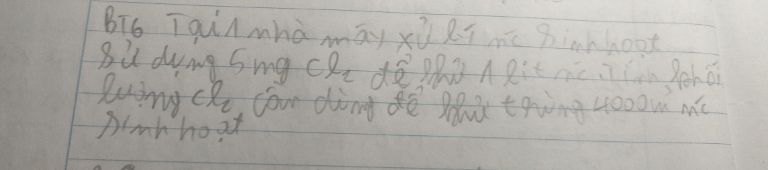 BT6 Tại 1 nhà máy xử lí nc sinh hoạt
sử dụng 5 mg Cl₂ để khử 1 lít nc. Tính khối
lượng Cl₂ cần dùng để khử trùng 4000m³ nc
sinh hoạt